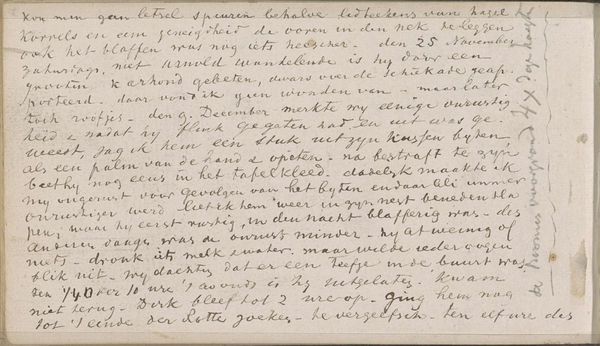 kon men geen letsel speuren behalve lidteekens van hagel
korrels en eem geneigdheid de ooren in den nek te leggen
ook het blaffen was nog iets heescher. - den 25 November
zaturdags, met Arnold wandelende is hy door een
grooten karhond gebeten, dwars over de schiekade geap-
porteerd. daar vond ik geen wonden van - maar later
toch roofjes - den 9. December merkte wy eenige onrustig
heid & nadat hy flink gegaten had en uit was ge-
weest, zag ik hem een stuk uit zyn kussen byten,
als een palm van de hand & opeten. - na bestraft te zyn
beet hy nog eens in het tafelkleed. dadelyk maakte ik
my ongerust voor gevolgen van het byten en daar Ali immer
onrustiger werd - liet ik hem weer in zyn nest beneden sla
pen, waar hy eerst rustig, in den nacht blafferig was - des
anderen daags was de onrust minder - hy at weinig of
niets - dronk iets melk & water. maar wilde ieder oogen
blik uit - wy dachten dat er een teefje in de buurt was,
ten 1/4 over 10 ure 's avonds is hy uitgelaten. Kwam
niet terug - Dirk bleef tot 2 ure op - ging hem nog
tot 't einde der Rotte zoeken - te vergeefsch - ten elf ure des
de voorgrond 4 X zoo hoog